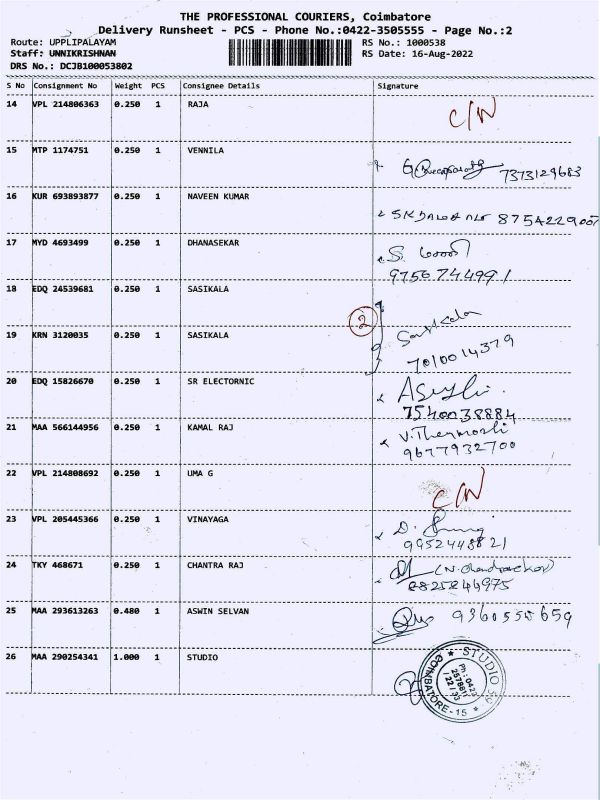 THE PROFESSIONAL COURIERS, Coimbatore
Delivery Runsheet - PCS - Phone No.:0422-3505555 - Page No.:2
Route: UPPLIPALAYAM RS No.: 1000538
Staff: UNNIKRISHNAN RS Date: 16-Aug-2022
DRS No.: DCJB100053802
S No Consignment No Weight PCS Consignee Details Signature
14 VPL 214806363 0.250 1 RAJA C/N
15 MTP 1174751 0.250 1 VENNILA 7373129683
16 KUR 693893877 0.250 1 NAVEEN KUMAR 8754229007
17 MYD 4693499 0.250 1 DHANASEKAR
9756744991
18 EDQ 24539681 0.250 1 SASIKALA
2
19 KRN 3120035 0.250 1 SASIKALA Sasikala
7010014379
20 EDQ 15826670 0.250 1 SR ELECTORNIC
7540038884
21 MAA 566144956 0.250 1 KAMAL RAJ
9677932700
22 VPL 214808692 0.250 1 UMA G C/N
23 VPL 205445366 0.250 1 VINAYAGA
9952448821
24 TKY 468671 0.250 1 CHANTRA RAJ
8825244975
25 MAA 293613263 0.480 1 ASWIN SELVAN 9360550659
26 MAA 290254341 1.000 1 STUDIO
STUDIO
Ph : 0422
COIMBATORE - 15